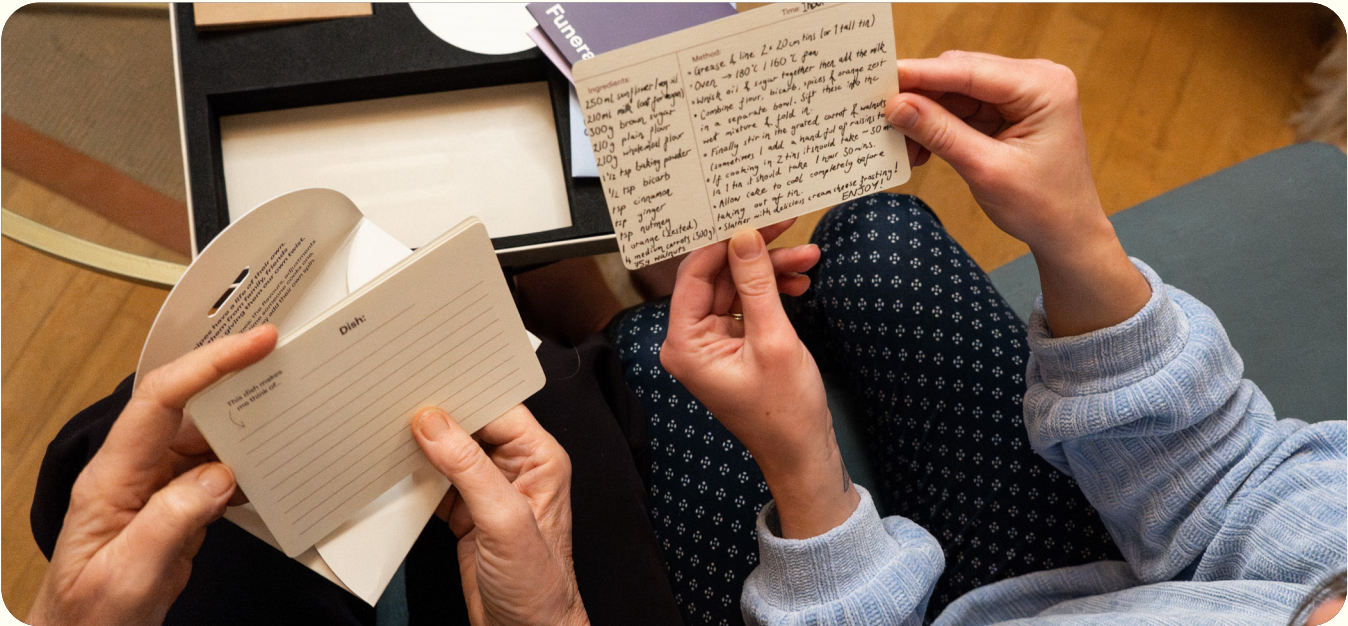 Funera
Time: 1hour
Ingredients:
250ml sunflower/veg oil
210ml milk (oat for vegan)
300g brown sugar
210g plain flour
210g wholemeal flour
1 1/2 tsp baking powder
1/2 tsp bicarb
tsp cinnamon
tsp ginger
tsp nutmeg
1 orange (zested)
4 medium carrots (300g)
75g walnuts
Method:
• Grease & line 2 x 20cm tins (or 1 tall tin)
• Oven → 180°c / 160°c fan
• Whisk oil & sugar together then add the milk
• Combine flour, bicarb, spices & orange zest
in a separate bowl. Sift these into the
wet mixture & fold in.
• Finally stir in the grated carrot & walnuts
(sometimes I add a handful of raisins too
• If cooking in 2 tins it should take ~30m
in 1 tin it should take 1 hour 30mins.
• Allow cake to cool completely before
taking out of tin.
• Slather with delicious cream cheese frosting!
ENJOY!
ipes have a life of their own.
them from family, friends
giving them our own twist.
the flavours, adjustments
time someone cooks one,
they add their own spin.
Dish:
This dish makes
me think of...